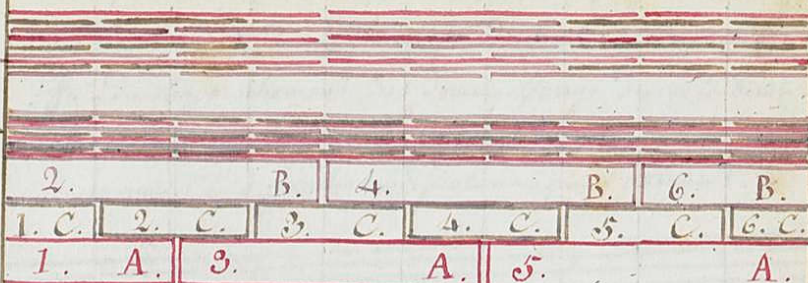 2. B. 4. B. 6. B.
1. C. 2. C. 3. C. 4. C. 5. C. 6. C.
1. A. 3. A. 5. A.